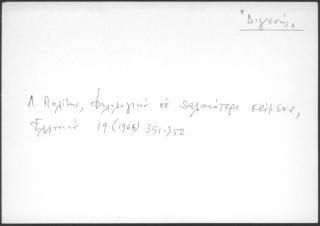 "Διγενής"
Λ. Πολίτης, Φιλολογικά σὲ παλαιότερα κείμενα,
Ἑλληνικά 19 (1966) 351-352.